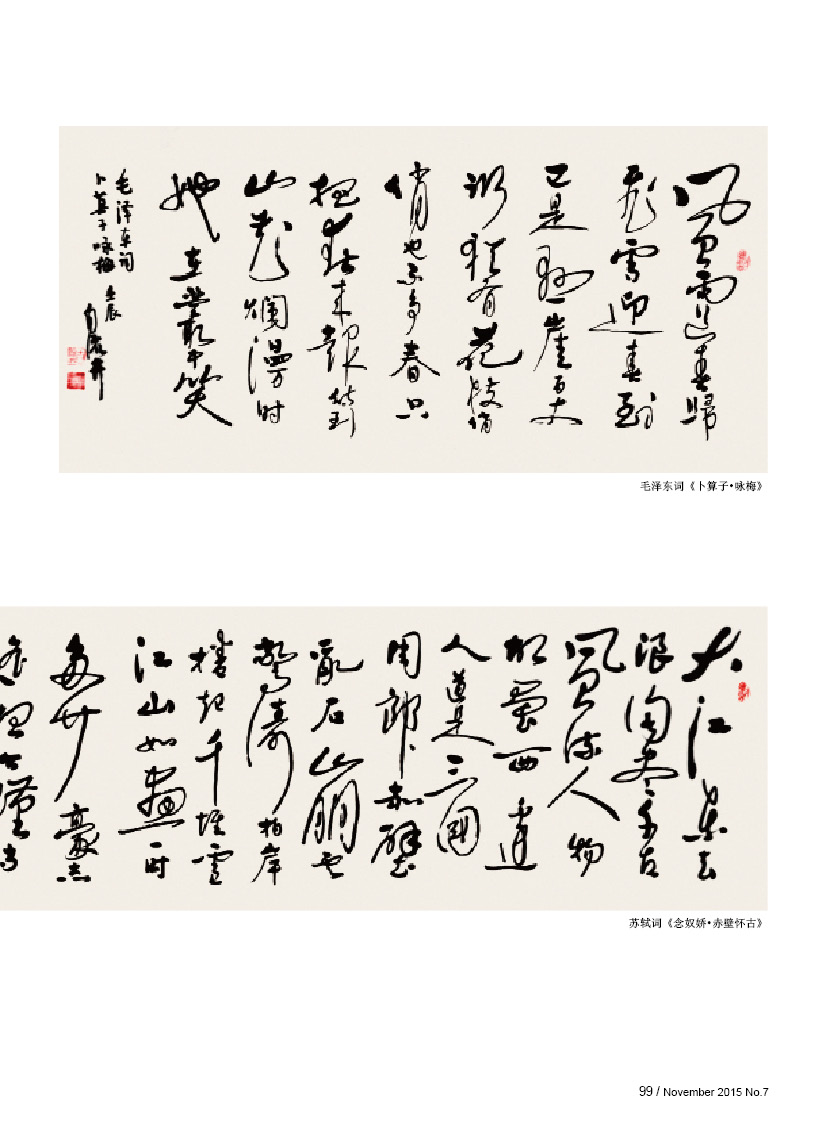 風雨送春歸
飛雪迎春到
已是懸崖百丈
冰猶有花枝俏
俏也不争春只
把春來報待到
山花爛漫时
她在叢中笑
毛泽东词
卜算子咏梅 壬辰
毛泽东词《卜算子•咏梅》
大江東去
浪淘盡千古
風流人物
故壘西邊
人道是三國
周郎赤壁
亂石崩云
驚濤拍岸
捲起千堆雪
江山如畫一时
多少豪杰
苏轼词《念奴娇•赤壁怀古》
99 / November 2015 No.7